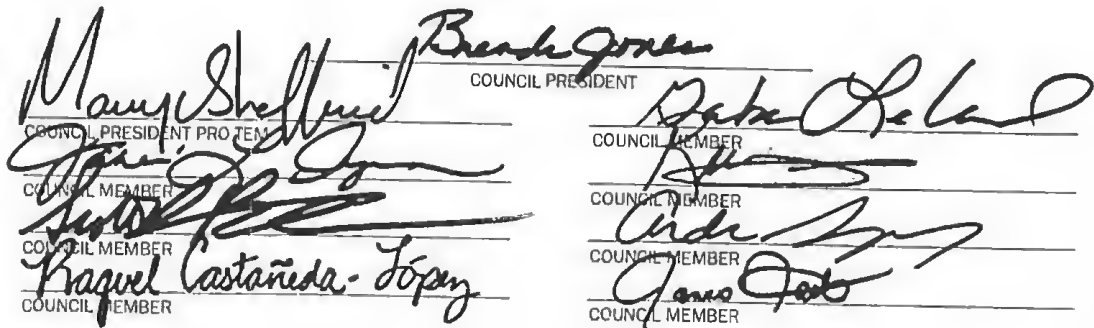 Brenda Jones
COUNCIL PRESIDENT
Mary Sheffield
COUNCIL PRESIDENT PRO TEM
COUNCIL MEMBER
Scott
COUNCIL MEMBER
Raquel Castañeda-López
COUNCIL MEMBER
Gabe Leland
COUNCIL MEMBER
COUNCIL MEMBER
Andre Spivey
COUNCIL MEMBER
James Tate
COUNCIL MEMBER